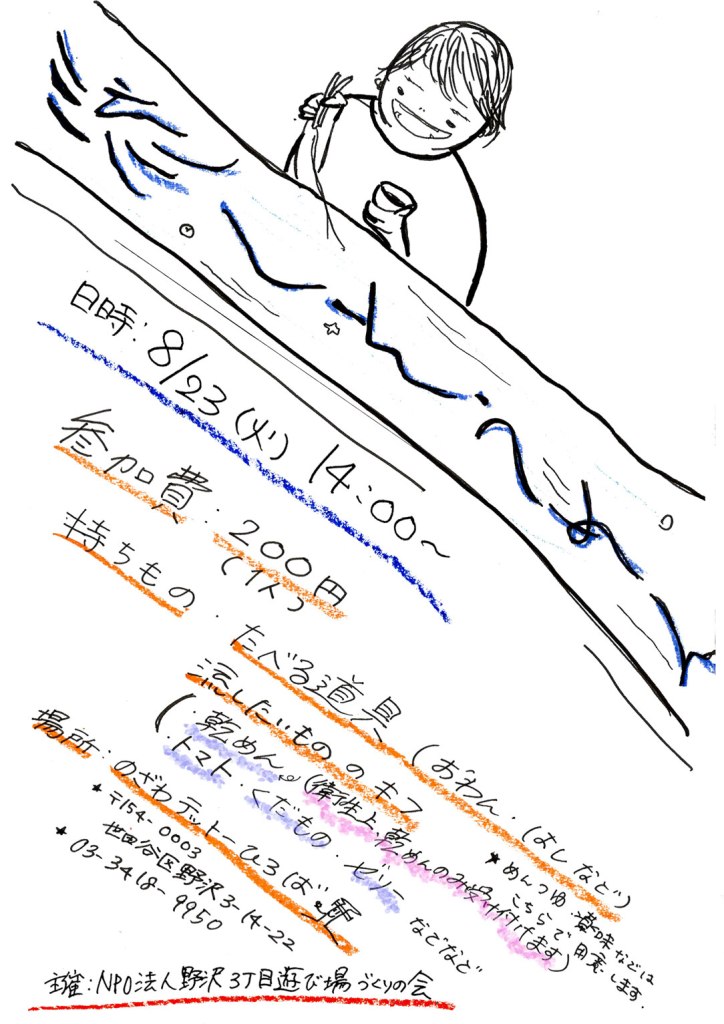 日時:8/23(火) 14:00~
参加費.200円
(1人)
持ちもの.
たべる道具(おわん.はしなど)
★めんつゆ・薬味などは
こちらで用意します.
流したいもの のキフ
(・乾めん(衛生上、乾めんのみ受け付けます)
・トマト・くだもの・ゼリー
などなど
場所:のざわテットーひろば
★〒154-0003
世田谷区野沢3-14-22
★03-3418-9950
主催:NPO法人野沢3丁目遊び場づくりの会